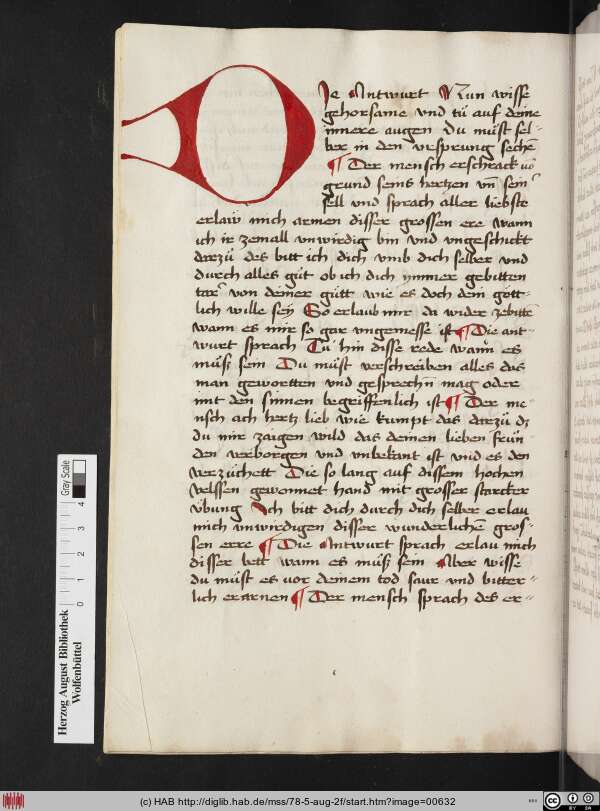 Die Antwurt Nun wisse
gehorsame vnd tů auf deine
innere augen du můst sel-
ber in den vrsprung sechē
¶ Der mensch erschrack vō
grund seins hertzen vn̄ sein
sell vnd sprach aller liebste
erlaw mich armen disser grossen ere wann
ich ir zemall vnwirdig bin vnd vngeschickt
darzů des bitt ich dich vmb dich selber vnd
durch alles gůt ob ich dich ymmer gebitten
tar von deiner gůtt wie es doch dein gött-
lich wille sey So erlaub mir da wider zebittē
wann es mir so gar vngemesse ist ¶ Die ant-
wurt sprach Tů hin disse rede wann es
můß sein Du můst verschreiben alles das
man gewortten vnd gesprechn̄ mag oder
mit den sinnen begriffenlich ist ¶ Der me-
nsch ach hertz lieb wie kumpt das darzů dz
du mir zaigen wild das deinen lieben freun
den verborgen vnd vnbekant ist vnd es den
verzüchett Die so lang auf dissem hochen
velssen gewonnet hand mit grosser starcker
übung Ich bitt dich durch dich selber erlau
mich vnwirdigen disser wunderlichē gros-
sen erre ¶ Die Antwurt sprach erlau mich
disser bett wann es můß sein Aber wisse
du můst es vor deinem tod saur vnd bitter-
lich erarnen ¶ Der mensch sprach des er-
Herzog August Bibliothek
Wolfenbüttel
0 1 2 3 4
Gray Scale
(c) HAB http://diglib.hab.de/mss/78-5-aug-2f/start.htm?image=00632